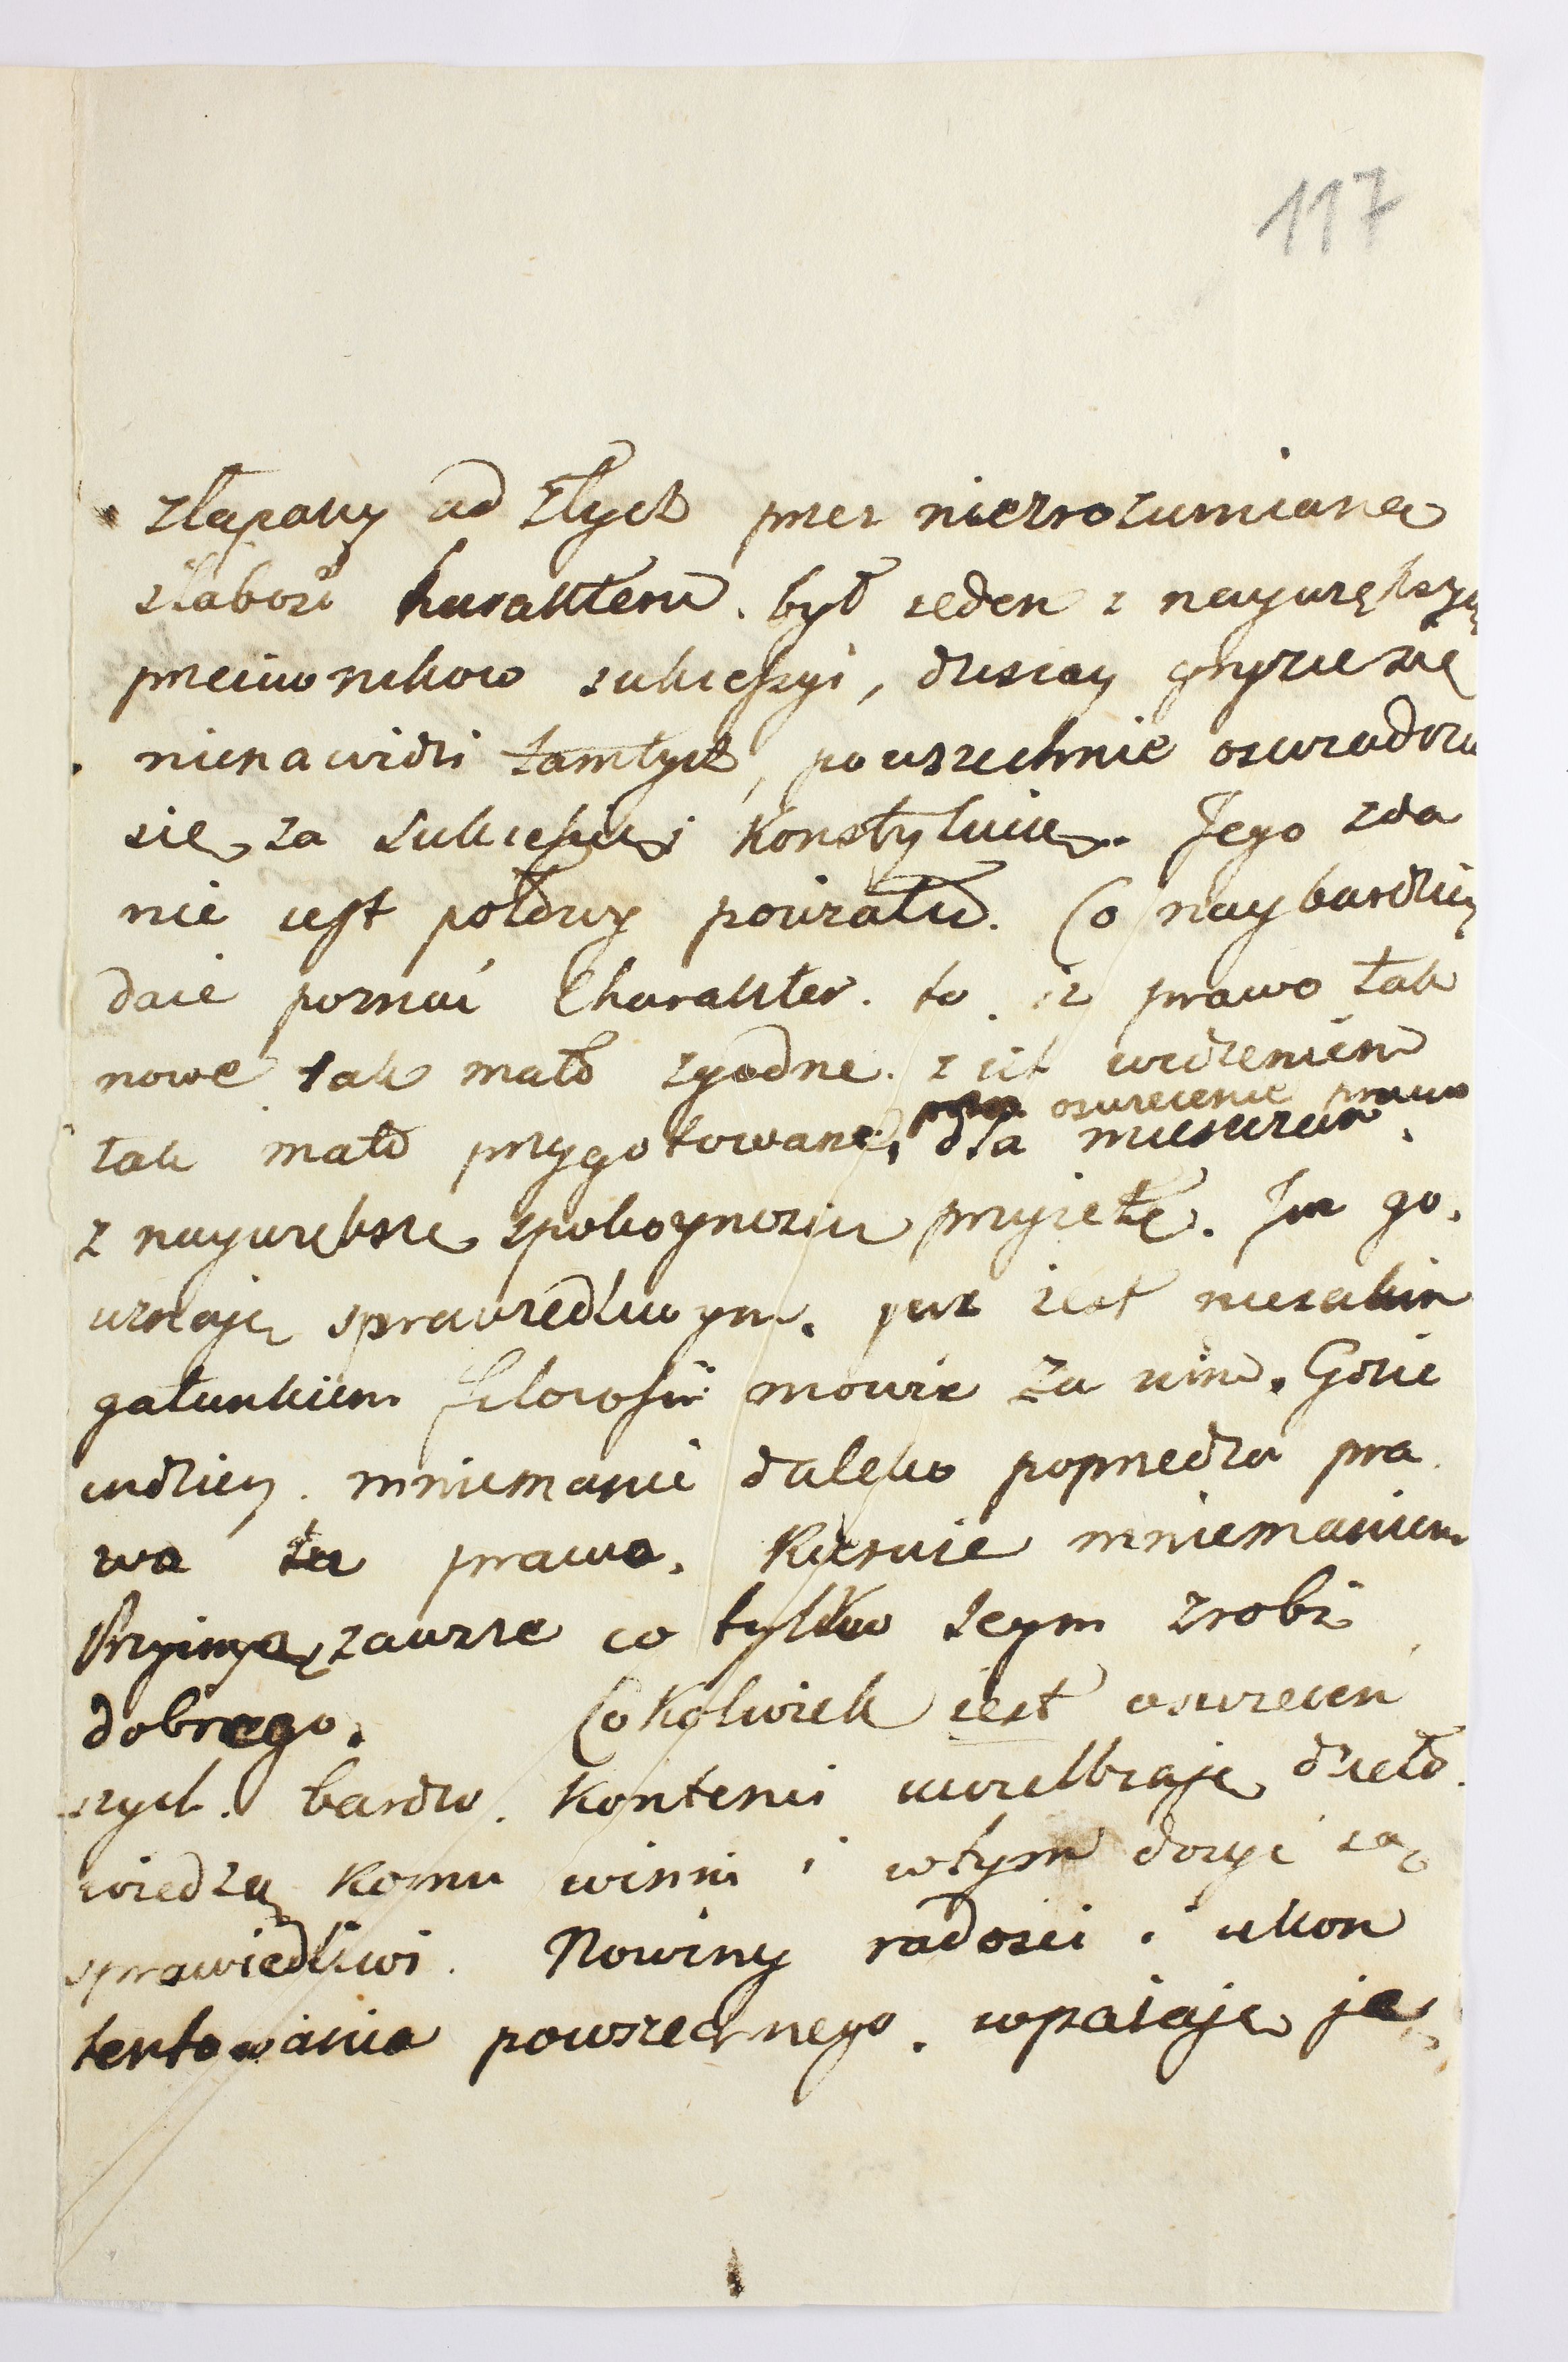 117
złapany od złych przez niezrozumianą
słabość harakteru. był ieden z naywiększy
przeciwnikow sukcessyi, dzisiay gryzie się
nienawidzi tamtych, powszechnie oswiadcza
się za sukcessią i Konstytucią. Jego zda
nie iest połowy powiatu. Co naybardziey
daie poznać Charakter. to. iż prawo tak
nowe tak mało zgodne. z ich widzeniem
oswiecenie prawo
tak mało przygotowane, dla mieszczan,
z naywiększą spokoynością przyięte. Im go.
uznają sprawiedliwym. już iest nieiakim
gatunkiem filozofii mowić za nim. Gdzie
indziey. mniemanie daleko poprzedza pra
wa tu prawo. Kieruie mniemaniem
Przyimą zawsze co tylko seym zrobi
dobrego. Cokolwiek iest oswiecen
szych. bardzo. kontenci uwielbiają dzieło.
wiedzą komu winni i w tym dosyć są
sprawiedliwi. Nowiny radości i ukon
tentowania powszechnego. wpaiają ją